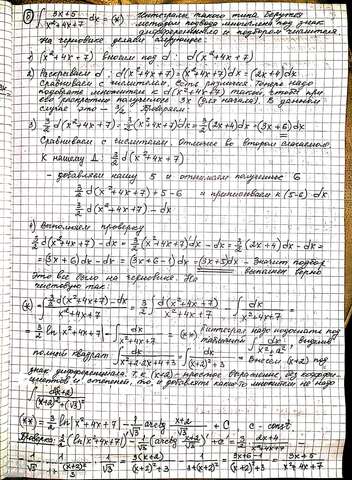 ⑤ ∫ (3x+5)/(x²+4x+7) dx = (*) Интегралы такого типа берутся
методом подвода знаменателя под знак
дифференциала и подбором числителя.
На черновике делаем следующее:
1) (x²+4x+7) вносим под d: d(x²+4x+7)
2) Раскрываем d: d(x²+4x+7)=(x²+4x+7)'dx = (2x+4)dx
Сравниваем с числителем. Есть различия. Теперь надо
подобрать множитель к d(x²+4x+7) такой, чтобы при
его раскрытии получилось 3x (для начала). В данном
случае это – 3/2. Проверяем:
3) 3/2 d(x²+4x+7)=3/2(x²+4x+7)'dx=3/2(2x+4)dx=(3x+6)dx
Сравниваем с числителем. Отличие во втором слагаемом.
К нашему d: 3/2 d(x²+4x+7)
– добавляем нашу 5 и отнимаем полученное 6
3/2 d(x²+4x+7)+5-6 и приписываем к (5-6) dx
3/2 d(x²+4x+7) - dx
4) Выполняем проверку
3/2 d(x²+4x+7) - dx = 3/2(x²+4x+7)'dx - dx = 3/2(2x+4)dx - dx =
= (3x+6)dx - dx = (3x+6-1)dx = (3x+5)dx – значит подбор
выполнен верно
Это все было на черновике. На
чистовую так:
(*) = ∫ (3/2 d(x²+4x+7) - dx)/(x²+4x+7) = 3/2 ∫ d(x²+4x+7)/(x²+4x+7) - ∫ dx/(x²+4x+7) =
= 3/2 ln|x²+4x+7| - ∫ dx/(x²+4x+7) = (**) II интеграл надо подогнать под
табличный ∫ dx/(x²+a²), выделив
полный квадрат ∫ dx/(x²+2·2x+4+3) = ∫ dx/((x+2)²+3) = внесем (x+2) под
знак дифференциала. Т.к. (x+2) – простое выражение, без коэффи-
циентов и степеней, то и добавлять какого-то множителя не надо
= ∫ d(x+2)/((x+2)²+(√3)²)
(**) = 3/2 ln|x²+4x+7| - 1/√3 arctg (x+2)/√3 + C C - const
Проверка: (3/2 (ln|x²+4x+7|) - 1/√3 (arctg (x+2)/√3)' + C' = 3/2 · (2x+4)/(x²+4x+7) -
- 1/√3 · 1/(1+(x+2)²/3) · 1/√3 = 3(x+2)/((x+2)²+3) - 1/((x+2)²+3) = (3x+6-1)/((x+2)²+3) = (3x+5)/(x²+4x+7)